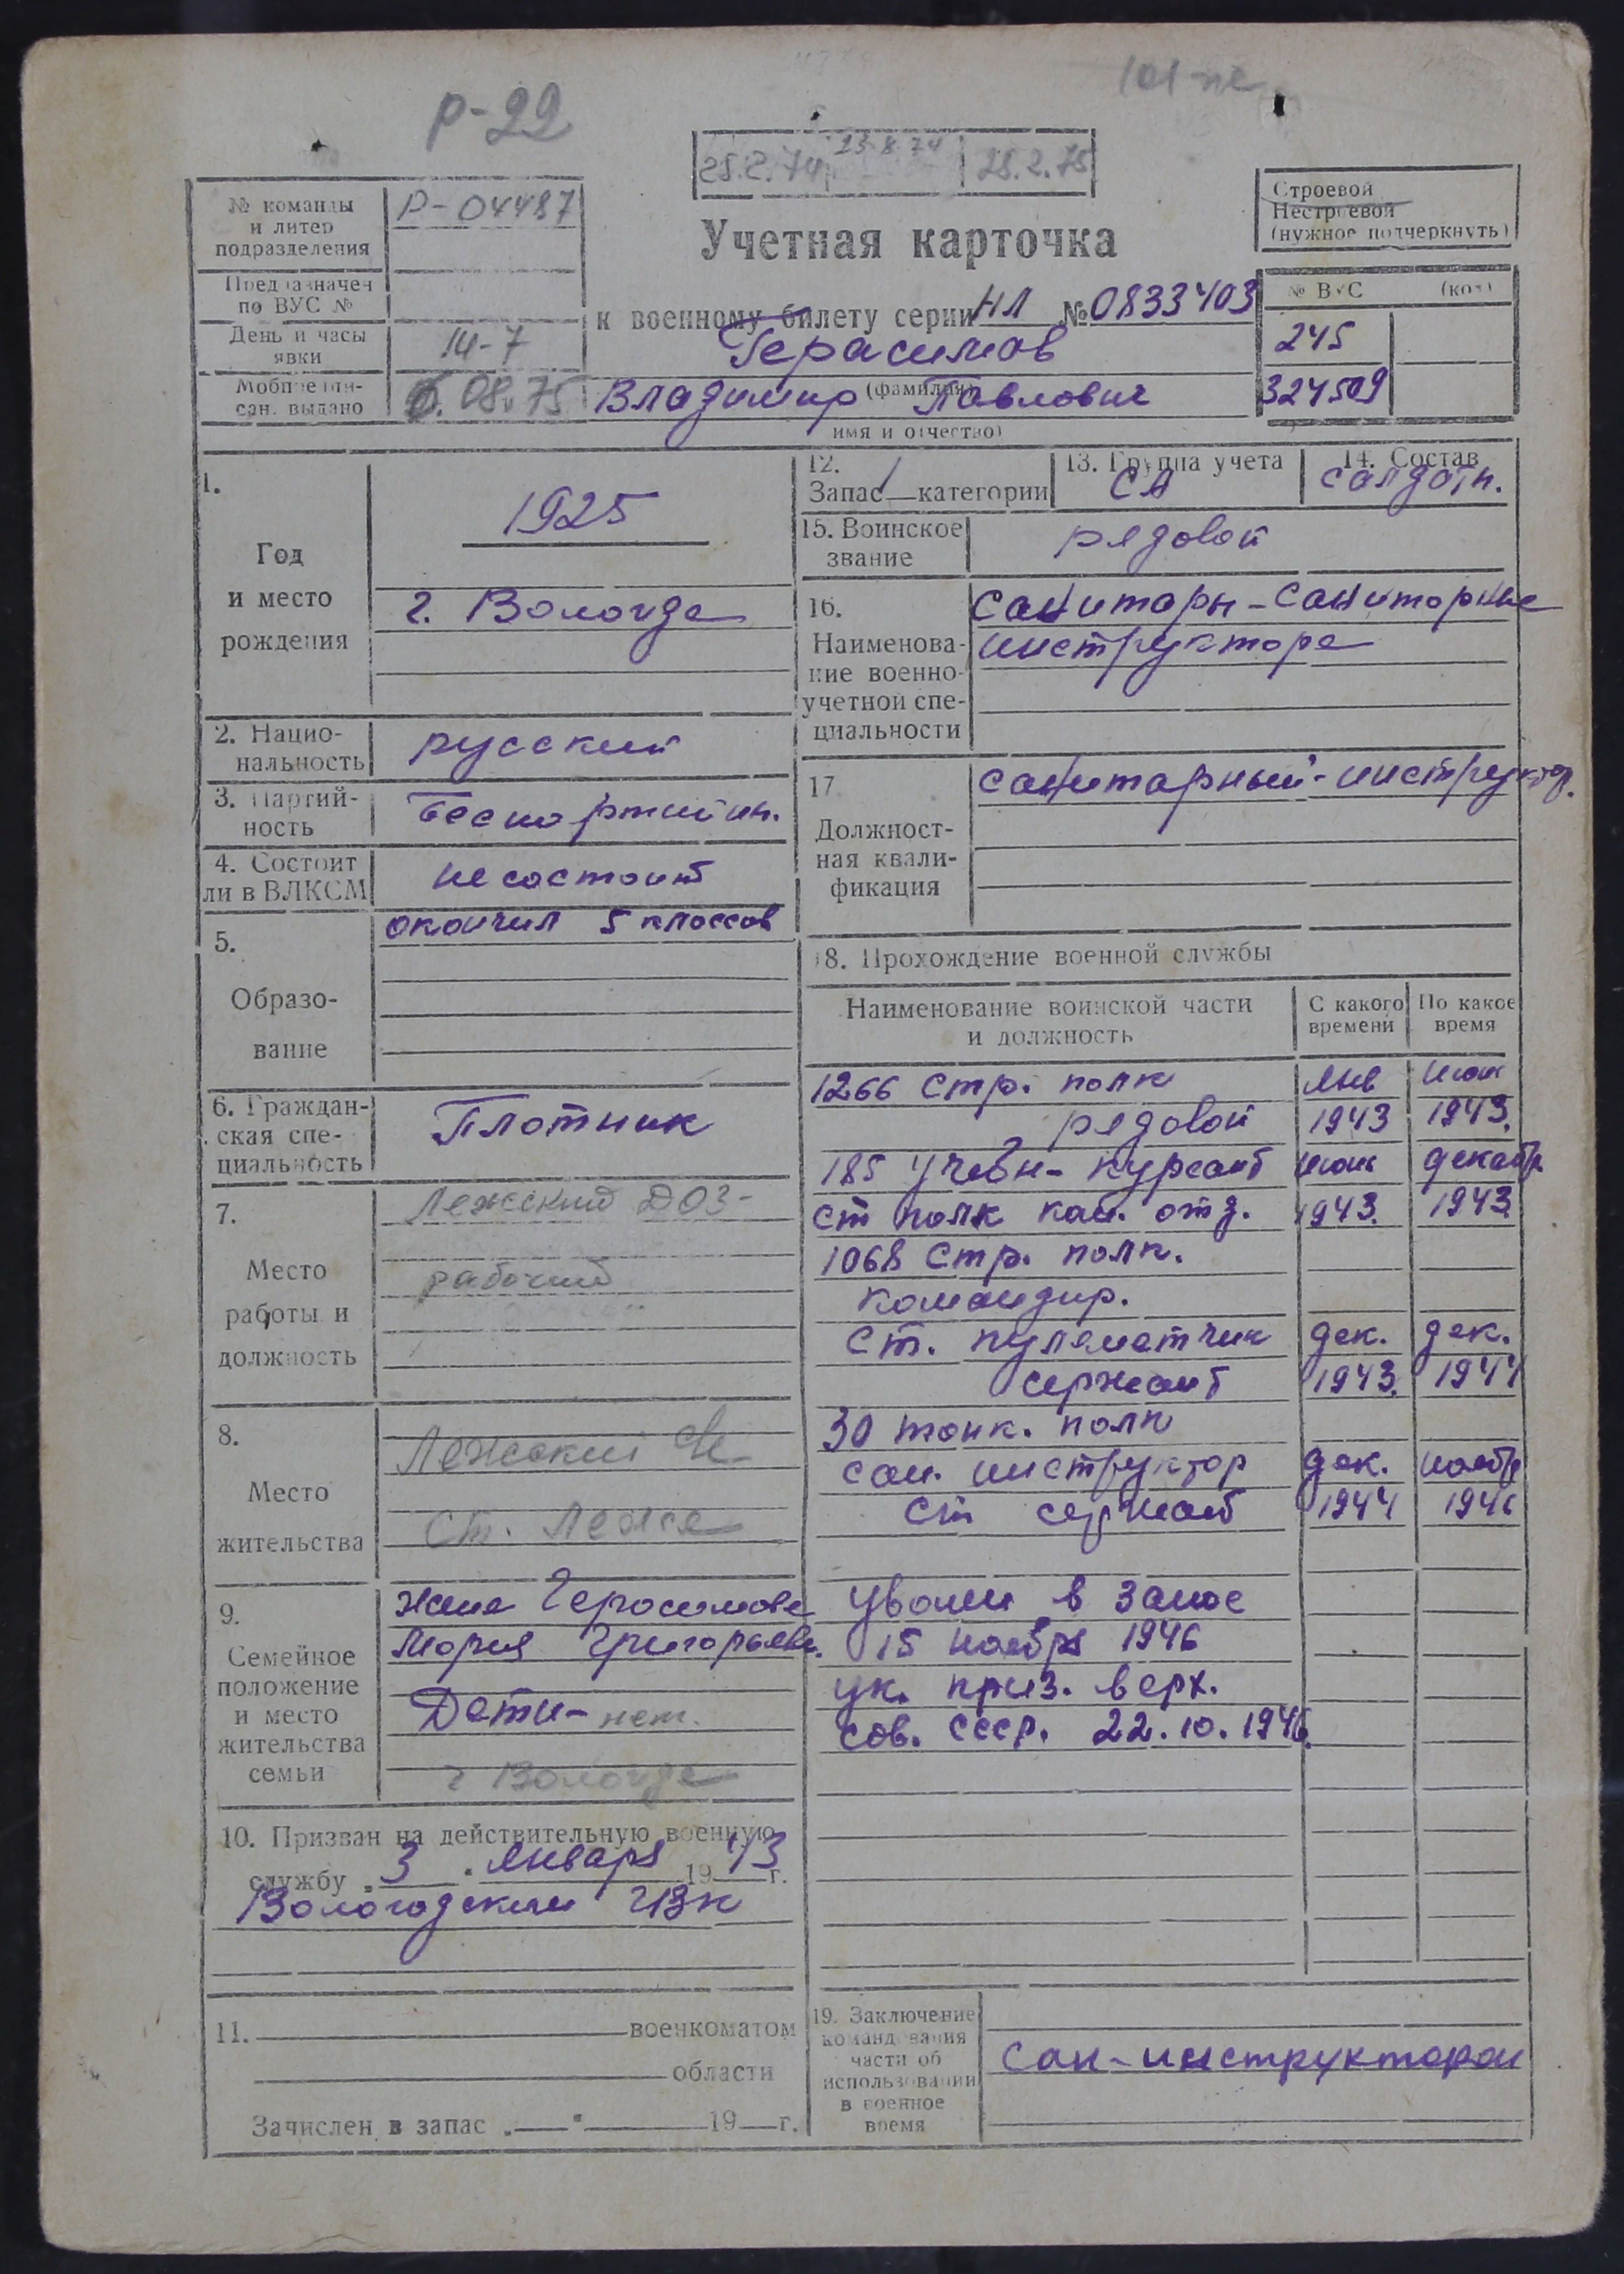 р-22
25.2.74
23.8.74
25.2.75
№ команды
и литер
подразделения
Р-04487
Учетная карточка
Строевой
Нестроевой
(нужное подчеркнуть)
Предназначен
по ВУС №
к военному билету серии НЛ № 0833403
№ ВУС (код)
День и часы
явки
14-7
Герасимов
245
Мобпредпи-
сан. выдано
08.75
(фамилия)
Владимир Павлович
324509
имя и отчество)
1.
Год
и место
рождения
1925
г. Вологда
2. Нацио-
нальность
русский
3. Партий-
ность
беспартийн.
4. Состоит
ли в ВЛКСМ
не состоит
5.
Образо-
вание
окончил 5 классов
6. Граждан-
ская спе-
циальность
Плотник
7.
Место
работы и
должность
Лежский ДОЗ-
рабочий
8.
Место
жительства
Лежский
ст. Лежа
9.
Семейное
положение
и место
жительства
семьи
жена Герасимова
Мария Григорьевн.
Дети- нет.
г Вологда
10. Призван на действительную военную
службу 3 января 1943 г.
Вологодским ГВК
11. военкоматом
области
Зачислен в запас 19 г.
12.
Запас 1 категории
13. Группа учета
СА
14. Состав
солдатн.
15. Воинское
звание
рядовой
16.
Наименова-
ние военно-
учетной спе-
циальности
Санитары-санитарные
инструктора
17
Должност-
ная квали-
фикация
санитарный-инструктор.
18. Прохождение военной службы
Наименование воинской части
и должность
С какого
времени
По какое
время
1266 стр. полк янв июн
рядовой 1943 1943.
185 учебн- курсант июнь декабр
ст полк ком. отд. 1943. 1943
1068 стр. полк.
командир.
ст. пулеметчик дек. дек.
сержант 1943. 1944
30 танк. полк
сан. инструктор дек. ноябр
ст сержант 1944 1946
Уволен в запас
15 ноября 1946
ук. през. верх.
сов. СССР. 22.10.1946.
19. Заключение
командования
части об
использовании
в военное
время
Сан-инструктором